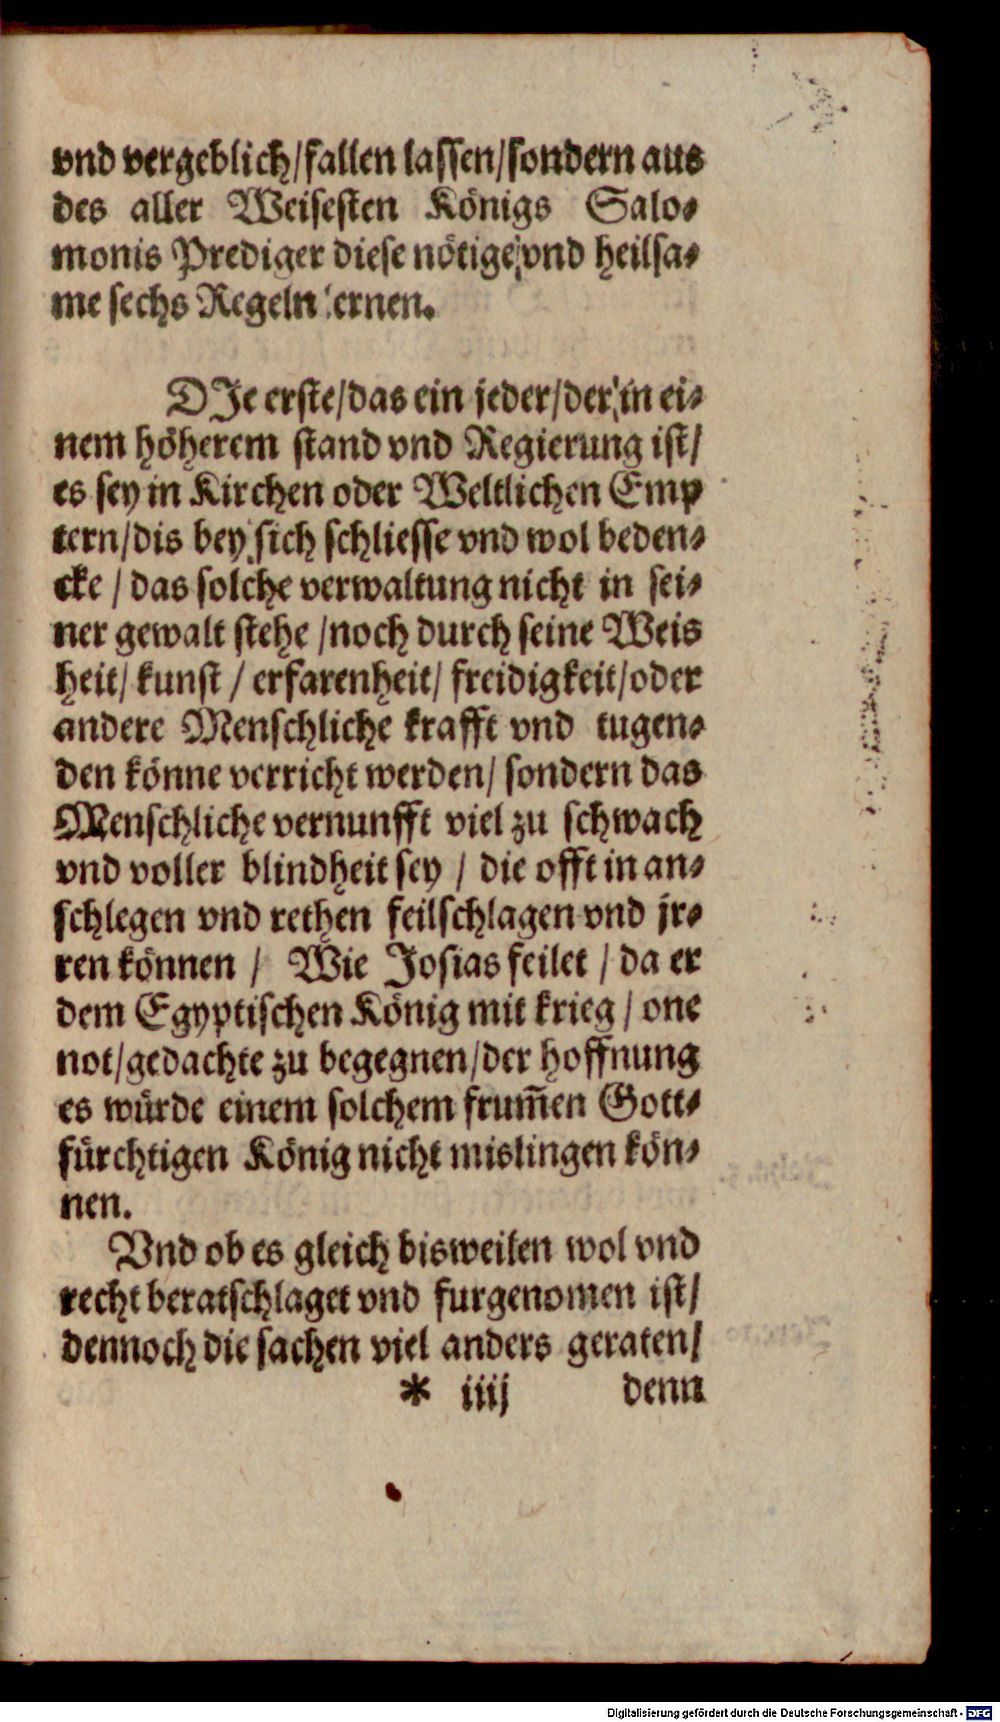 vnd vergeblich/fallen lassen/sondern aus
des aller Weisesten Königs Salo-
monis Prediger diese nötige/vnd heilsa-
me sechs Regeln lernen.
DIe erste/das ein jeder/der in ei-
nem höherem stand vnd Regierung ist/
es sey in Kirchen oder Weltlichen Emp
tern/dis bey sich schliesse vnd wol beden-
cke / das solche verwaltung nicht in sei-
ner gewalt stehe /noch durch seine Weis
heit/ kunst / erfarenheit/ freidigkeit/oder
andere Menschliche krafft vnd tugen-
den könne verricht werden/ sondern das
Menschliche vernunfft viel zu schwach
vnd voller blindheit sey / die offt in an-
schlegen vnd rethen feilschlagen vnd jr-
ren können / Wie Josias feilet / da er
dem Egyptischen König mit krieg / one
not/gedachte zu begegnen/der hoffnung
es würde einem solchem frum̄en Gott-
fürchtigen König nicht mislingen kön-
nen.
Vnd ob es gleich bisweilen wol vnd
recht beratschlaget vnd furgenomen ist/
dennoch die sachen viel anders geraten/
* iiij denn
Digitalisierung gefördert durch die Deutsche Forschungsgemeinschaft - DFG